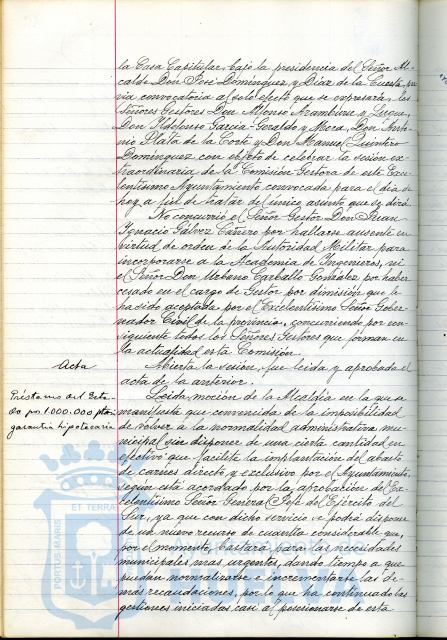 la Casa Capitular, bajo la presidencia del Señor Al-
calde Don José Domínguez y Díaz de la Cuesta, pre-
via convocatoria al solo efecto que se expresará, los
Señores Gestores Don Alfonso Aramburu y Luque,
Don Ildefonso García-Geraldo y Mora, Don Anto-
nio Plata de la Corte y Don Manuel Quintero
Domínguez con objeto de celebrar la sesión ex-
traordinaria de la Comisión Gestora de este Exce-
lentísimo Ayuntamiento convocada para el día de
hoy a fin de tratar del único asunto que se dirá
No concurrió el Señor Gestor Don Juan
Ignacio Gálvez Cañero por hallarse ausente en
virtud de orden de la Autoridad Militar para
incorporarse a la Academia de Ingenieros, ni
el Señor Don Urbano Carballo González por haber
cesado en el cargo de Gestor por dimisión que le
ha sido aceptada por el Excelentísimo Señor Gober-
nador Civil de la provincia, concurriendo por con-
siguiente todos los Señores Gestores que forman en
la actualidad esta Comisión.
Acta
Abierta la sesión, fue leída y aprobada el
acta de la anterior.
Préstamo del Esta-
do por 1.000.000 ptas
garantía hipotecaria
Leída moción de la Alcaldía en la que se
manifiesta que convencida de la imposibilidad
de volver a la normalidad administrativa mu-
nicipal sin disponer de una cierta cantidad en
efectivo que facilite la implantación del abasto
de carnes directo y exclusivo por el Ayuntamiento,
según está acordado por la aprobación del Ex-
celentísimo Señor General Jefe del Ejército del
Sur, ya que con dicho servicio se podrá disponer
de un nuevo recurso de cuantía considerable que,
por el momento, bastará para las necesidades
municipales mas urgentes, dando tiempo a que
puedan normalizarse e incrementarse las de-
más recaudaciones, por lo que ha continuado las
gestiones iniciadas casi al posesionarse de esta
PORTUS MARIS
ET TERRAE